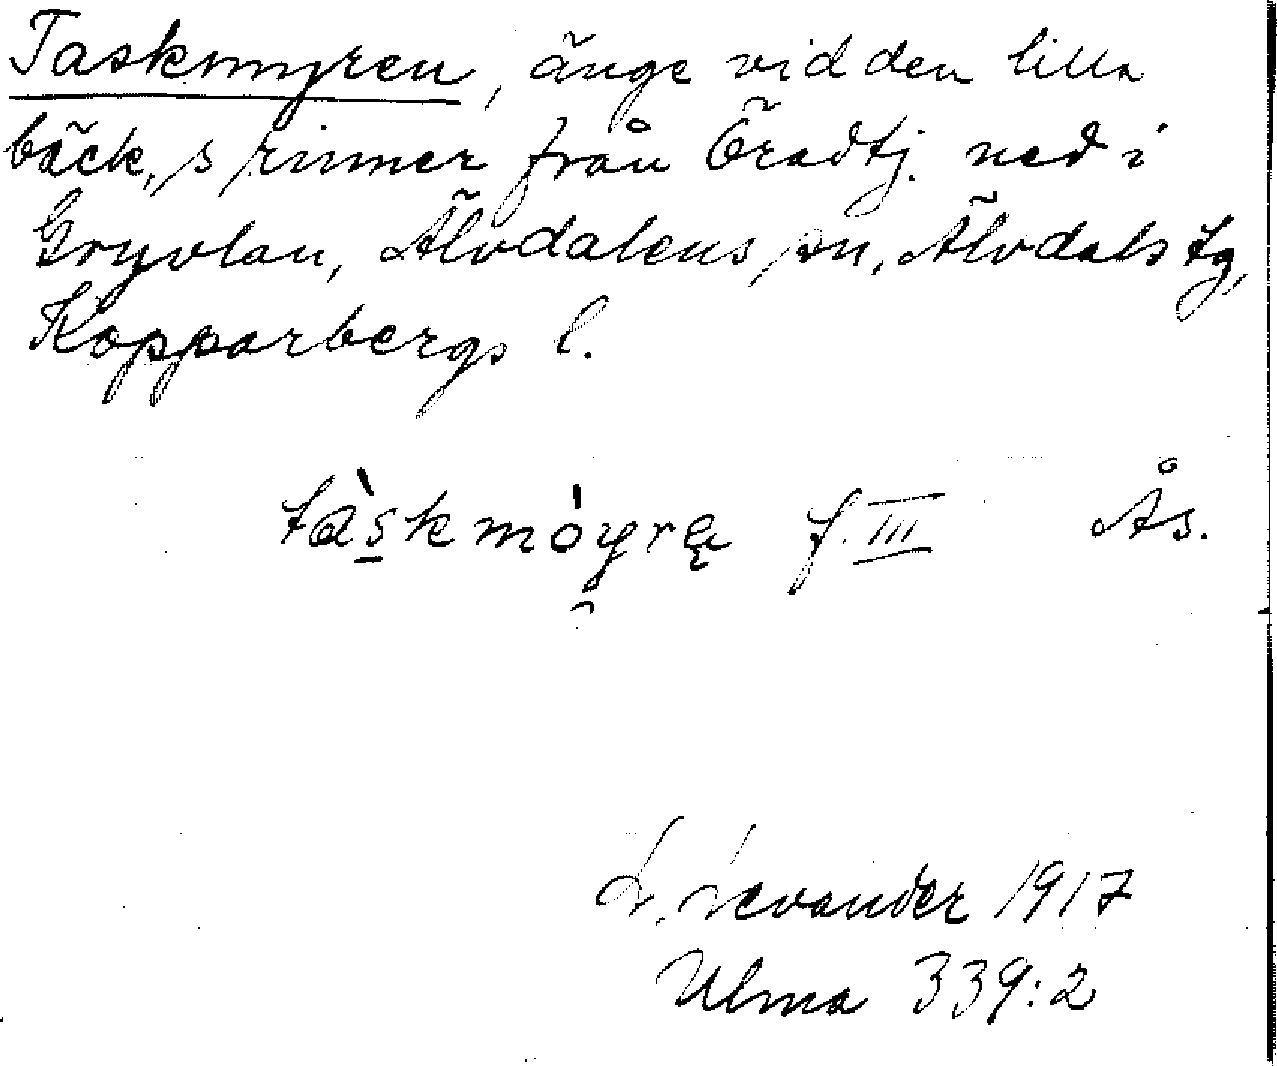 Taskmyren, änge vid den lilla
bäck, s rinner från Öradtj. ned i
Gryvlan, Älvdalens sn, Älvdals tg,
Kopparbergs l.
tàskmóyrą f. III Ås.
L. Levander 1917
Ulma 339:2